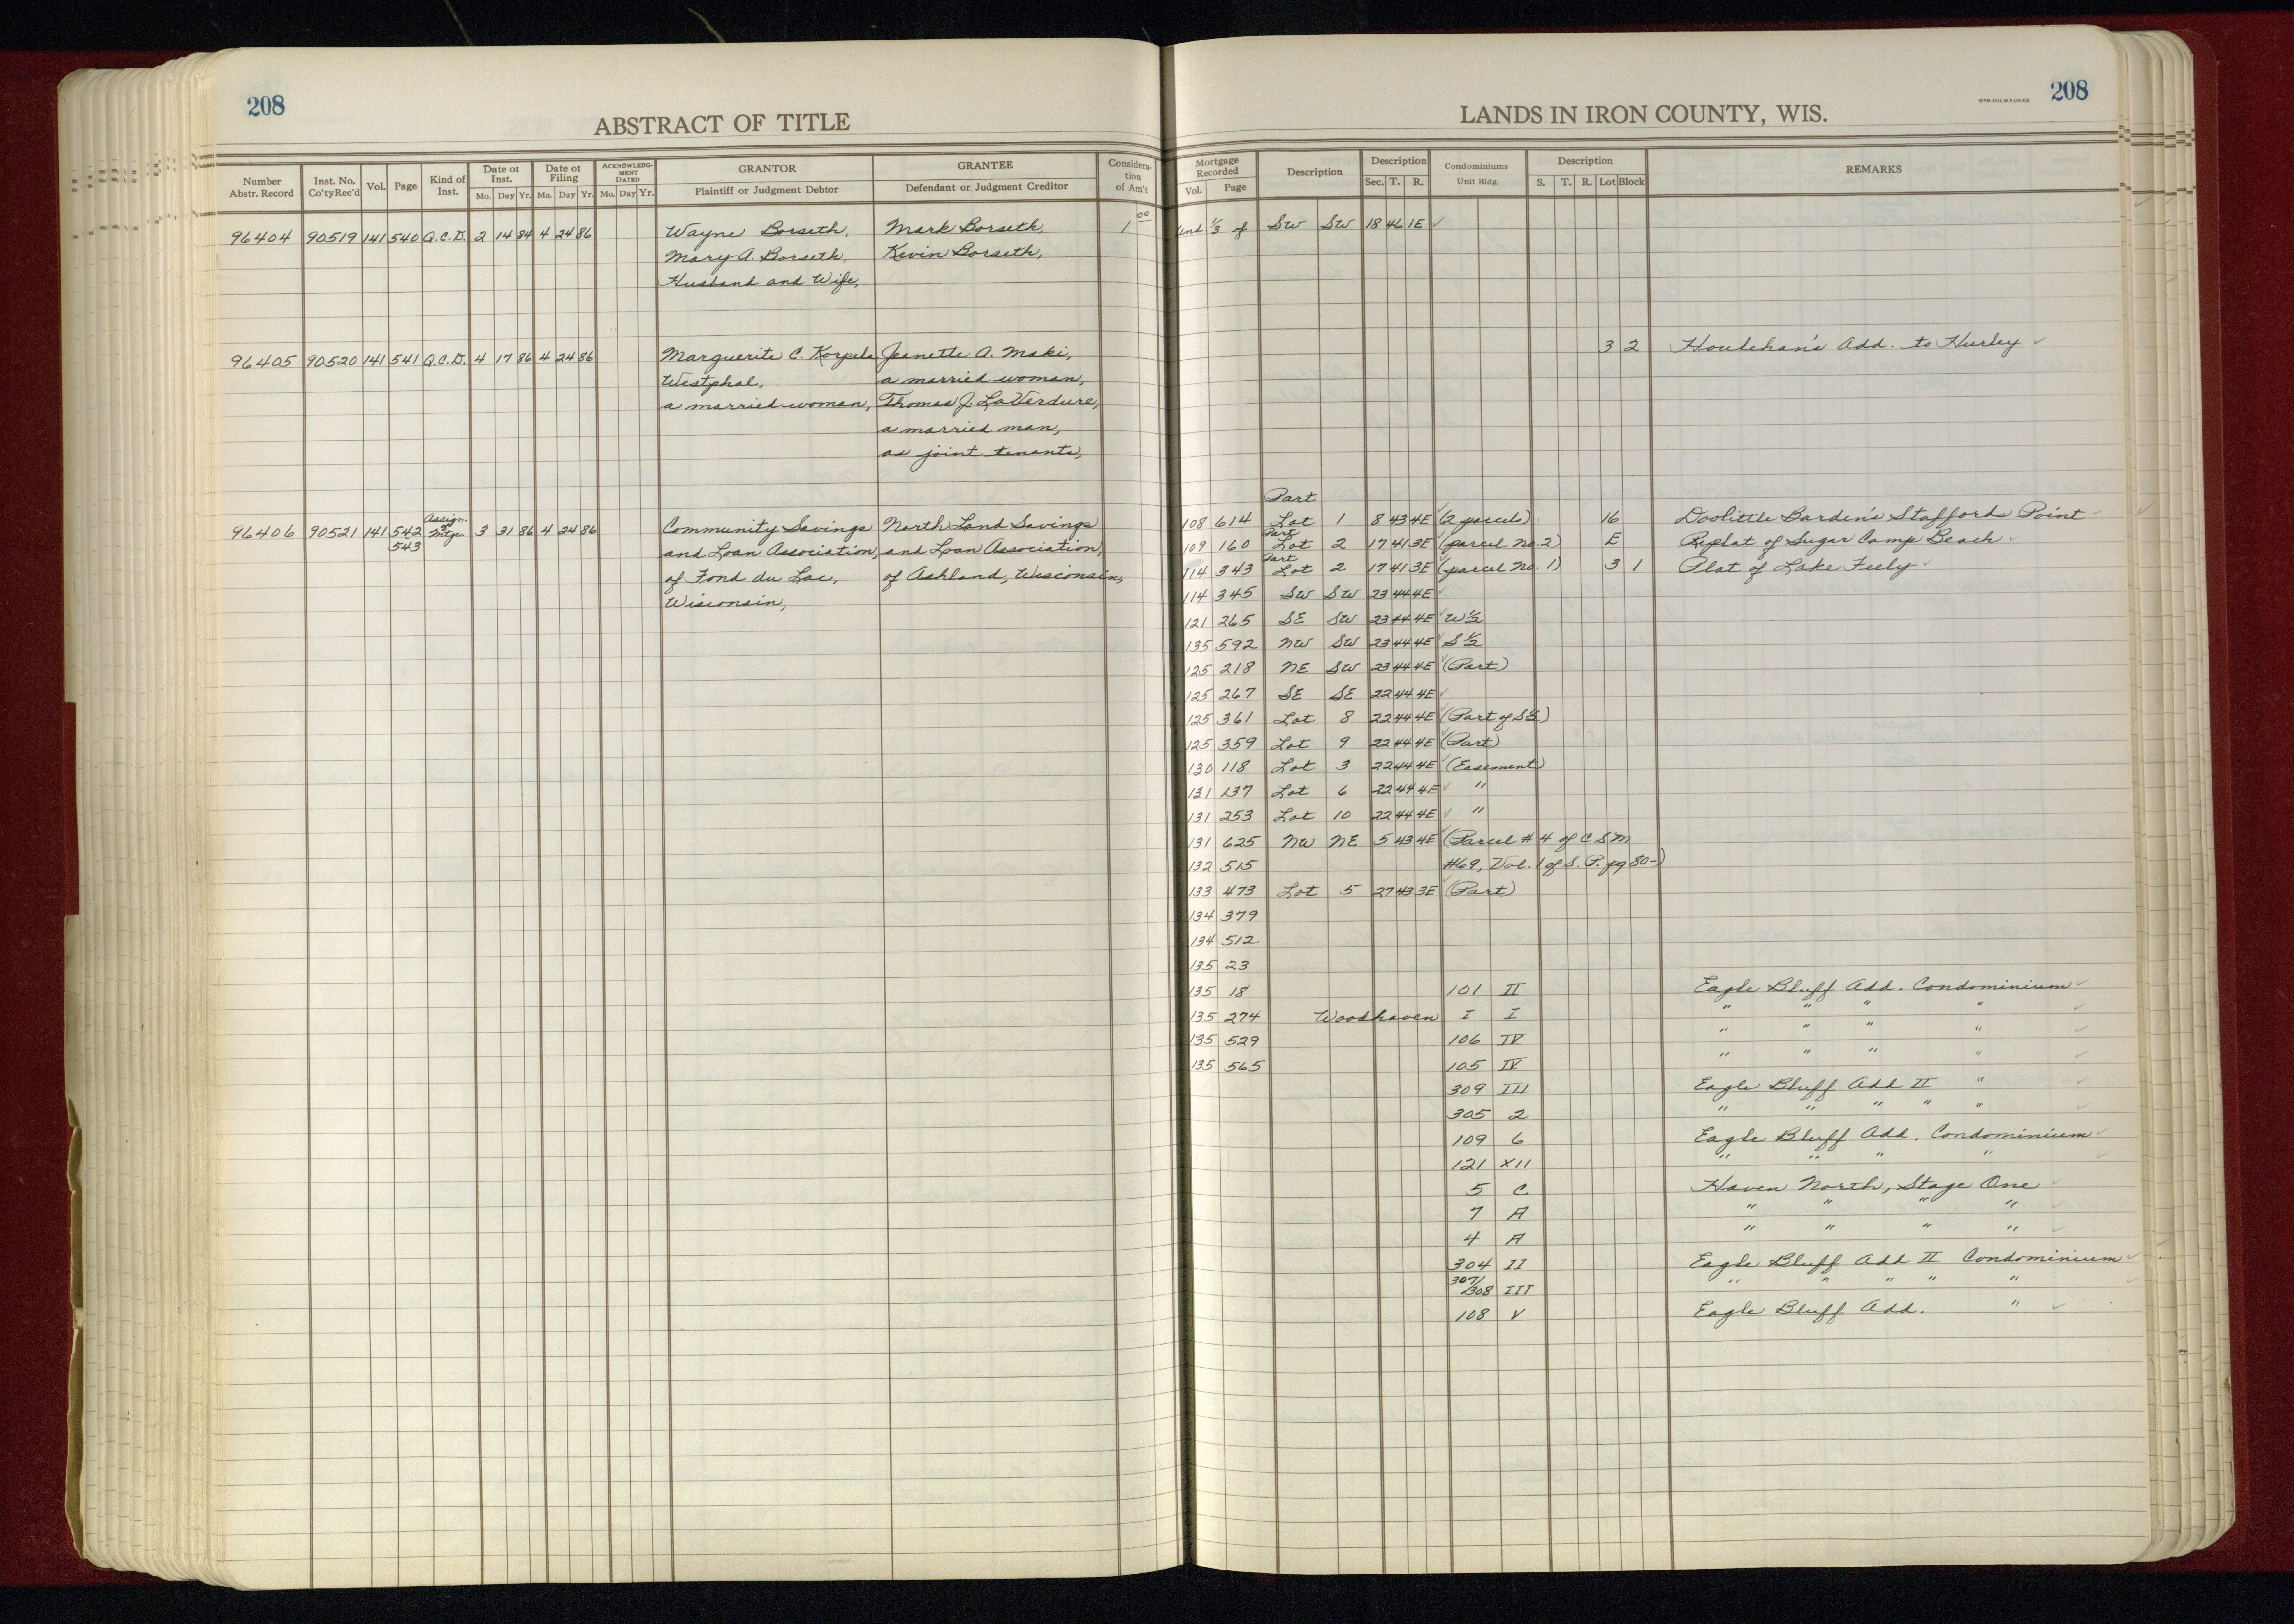 208
ABSTRACT OF TITLE
Number Abstr. Record | Inst. No. Co'ty Rec'd | Vol. | Page | Kind of Inst. | Date of Inst. Mo. Day Yr. | Date of Filing Mo. Day Yr. | ACKNOWLEDGMENT DATED Mo. Day Yr. | GRANTOR Plaintiff or Judgment Debtor | GRANTEE Defendant or Judgment Creditor | Consideration of Am't
96404 90519 141 540 Q.C.D. 2 14 84 4 24 86 Wayne Borseth, Mark Borseth, 1 00
Mary A. Borseth, Kevin Borseth,
Husband and Wife,
96405 90520 141 541 Q.C.D. 4 17 86 4 24 86 Marguerite C. Korpela Jeanette A. Maki,
Westphal, a married woman,
a married woman, Thomas J. LaVerdure,
a married man,
as joint tenants,
96406 90521 141 542 543 Assign. of Mtge. 3 31 86 4 24 86 Community Savings North Land Savings
and Loan Association, and Loan Association,
of Fond du Lac, of Ashland, Wisconsin,
Wisconsin,
LANDS IN IRON COUNTY, WIS.
WPB-MILWAUKEE
208
Mortgage Recorded Vol. Page | Description | Description Sec. T. R. | Condominiums Unit Bldg. | Description S. T. R. Lot Block | REMARKS
Und. 1/3 of SW SW 18 46 1E ✓
3 2 Houlehan's Add. to Hurley ✓
Part
108 614 Lot 1 8 43 4E ✓ (2 parcels) 16 Doolittle Barden's Staffords Point ✓
Part
109 160 Lot 2 17 41 3E (parcel No. 2) E Replat of Sugar Camp Beach ✓
Part
114 343 Lot 2 17 41 3E (parcel No. 1) 3 1 Plat of Lake Feely ✓
114 345 SW SW 23 44 4E ✓
121 265 SE SW 23 44 4E ✓ W 1/2
135 592 NW SW 23 44 4E ✓ S 1/2
125 218 NE SW 23 44 4E ✓ (Part)
125 267 SE SE 22 44 4E ✓
125 361 Lot 8 22 44 4E ✓ (Part of S 1/2)
125 359 Lot 9 22 44 4E ✓ (Part)
130 118 Lot 3 22 44 4E ✓ (Easement)
131 137 Lot 6 22 44 4E ✓ "
131 253 Lot 10 22 44 4E ✓ "
131 625 NW NE 5 43 4E ✓ (Parcel # 4 of C S M
132 515 #69, Vol. 1 of S. P. pg 80-)
133 473 Lot 5 27 43 3E ✓ (Part)
134 379
134 512
135 23
135 18 101 II Eagle Bluff Add. Condominium ✓
135 274 Woodhaven I I " " " " ✓
135 529 106 IV " " " " ✓
135 565 105 IV " " " " ✓
309 III Eagle Bluff Add II " ✓
305 2 " " " " " ✓
109 6 Eagle Bluff Add. Condominium ✓
121 XII " " " " ✓
5 C Haven North, Stage One ✓
7 A " " " " ✓
4 A " " " " ✓
304 II Eagle Bluff Add II Condominium ✓
307/
308 III " " " " " ✓
108 V Eagle Bluff Add. " ✓